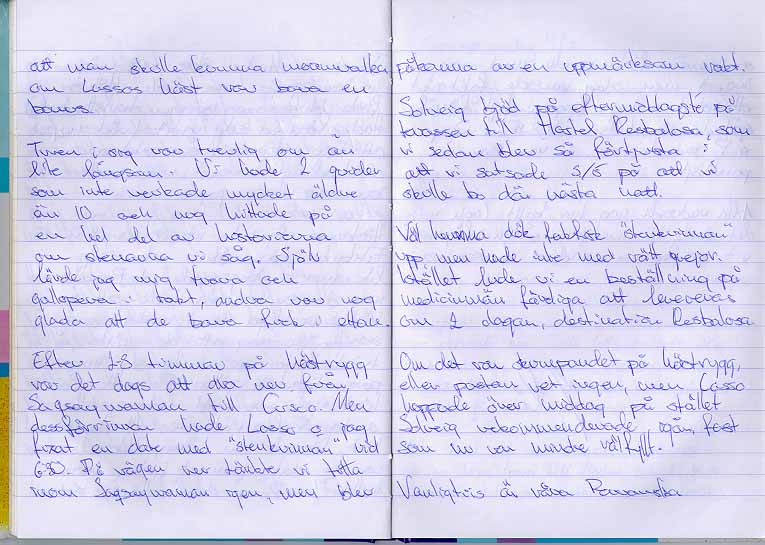 att man skulle komma moonwalka
om Lassos häst var bara en
bonus.
Turen i sog var trevlig om än
lite långsam. Vi hade 2 guider
som inte verkade mycket äldre
än 10 och nog hittade på
en hel del av historierna
om stenarna vi såg. Själv
lärde jag mig trava och
gallopera i takt, andra var nog
glada att de bara fick i ettan.
Efter 2-3 timmar på hästrygg
var det dags att dra ner från
Saqsaywaman till Cusco. Men
dessförrinnan hade Lasso o jag
fixat en date med "stenkvinnan" vid
6:30. På vägen ner tänkte vi titta
inom Saqsaywaman igen, men blev
påkomna av en uppmärksam vakt.
Solveig bjöd på eftermiddagsté på
terassen till Hostel Resbalosa, som
vi sedan blev så förtjusta i
att vi satsade 5/5 på att vi
skulle bo där nästa natt.
Väl hemma dök faktiskt "stenkvinnan"
upp men hade inte med rätt grejor.
Istället lade vi en beställning på
medicinmän färdiga att levereras
om 2 dagar, destination Resbalosa
Om det var skumpandet på hästrygg,
eller pastan vet ingen, men Lasso
hoppade över middag på stället
Solveig rekommenderade igår, fast
som nu var mindre välfyllt.
Vanligtvis är våra Peruanska